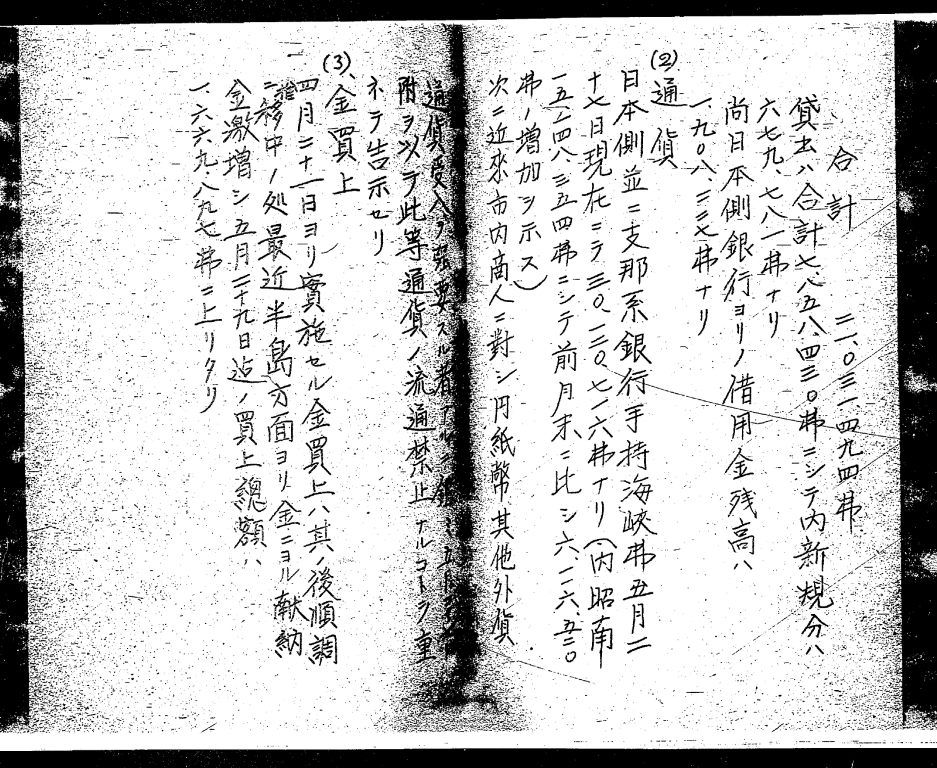 合計 二一、〇三一、四九四弗
貸出ハ合計七、八五八、四三〇弗ニシテ内新規分ハ
六七九、七八一弗ナリ
尚日本側銀行ヨリノ借用金残高ハ
一、九〇八、二二七弗ナリ
(2)通貨
日本側並ニ支那系銀行手持海峡弗五月二
十七日現在ニテ三〇、一二〇、七一六弗ナリ(内昭南
一五、一四八、三五四弗ニシテ前月末ニ比シ六、一一六、五二〇
弗ノ増加ヲ示ス)
次ニ近來市内商人ニ對シ円紙幣其他外貨
通貨受入ヲ強要スル者アルニ鑑ミ五月
附ヲ以テ此等通貨ノ流通禁止ナルコトヲ重
ネテ告示セリ
(3)、金買上
四月二十一日ヨリ實施セル金買上ハ其ノ後順調
ニ推移中ノ処最近半島方面ヨリ金ニヨル献納
金激増シ五月二十九日迠ノ買上總額ハ
一、六六九、八九七弗ニ上リタリ